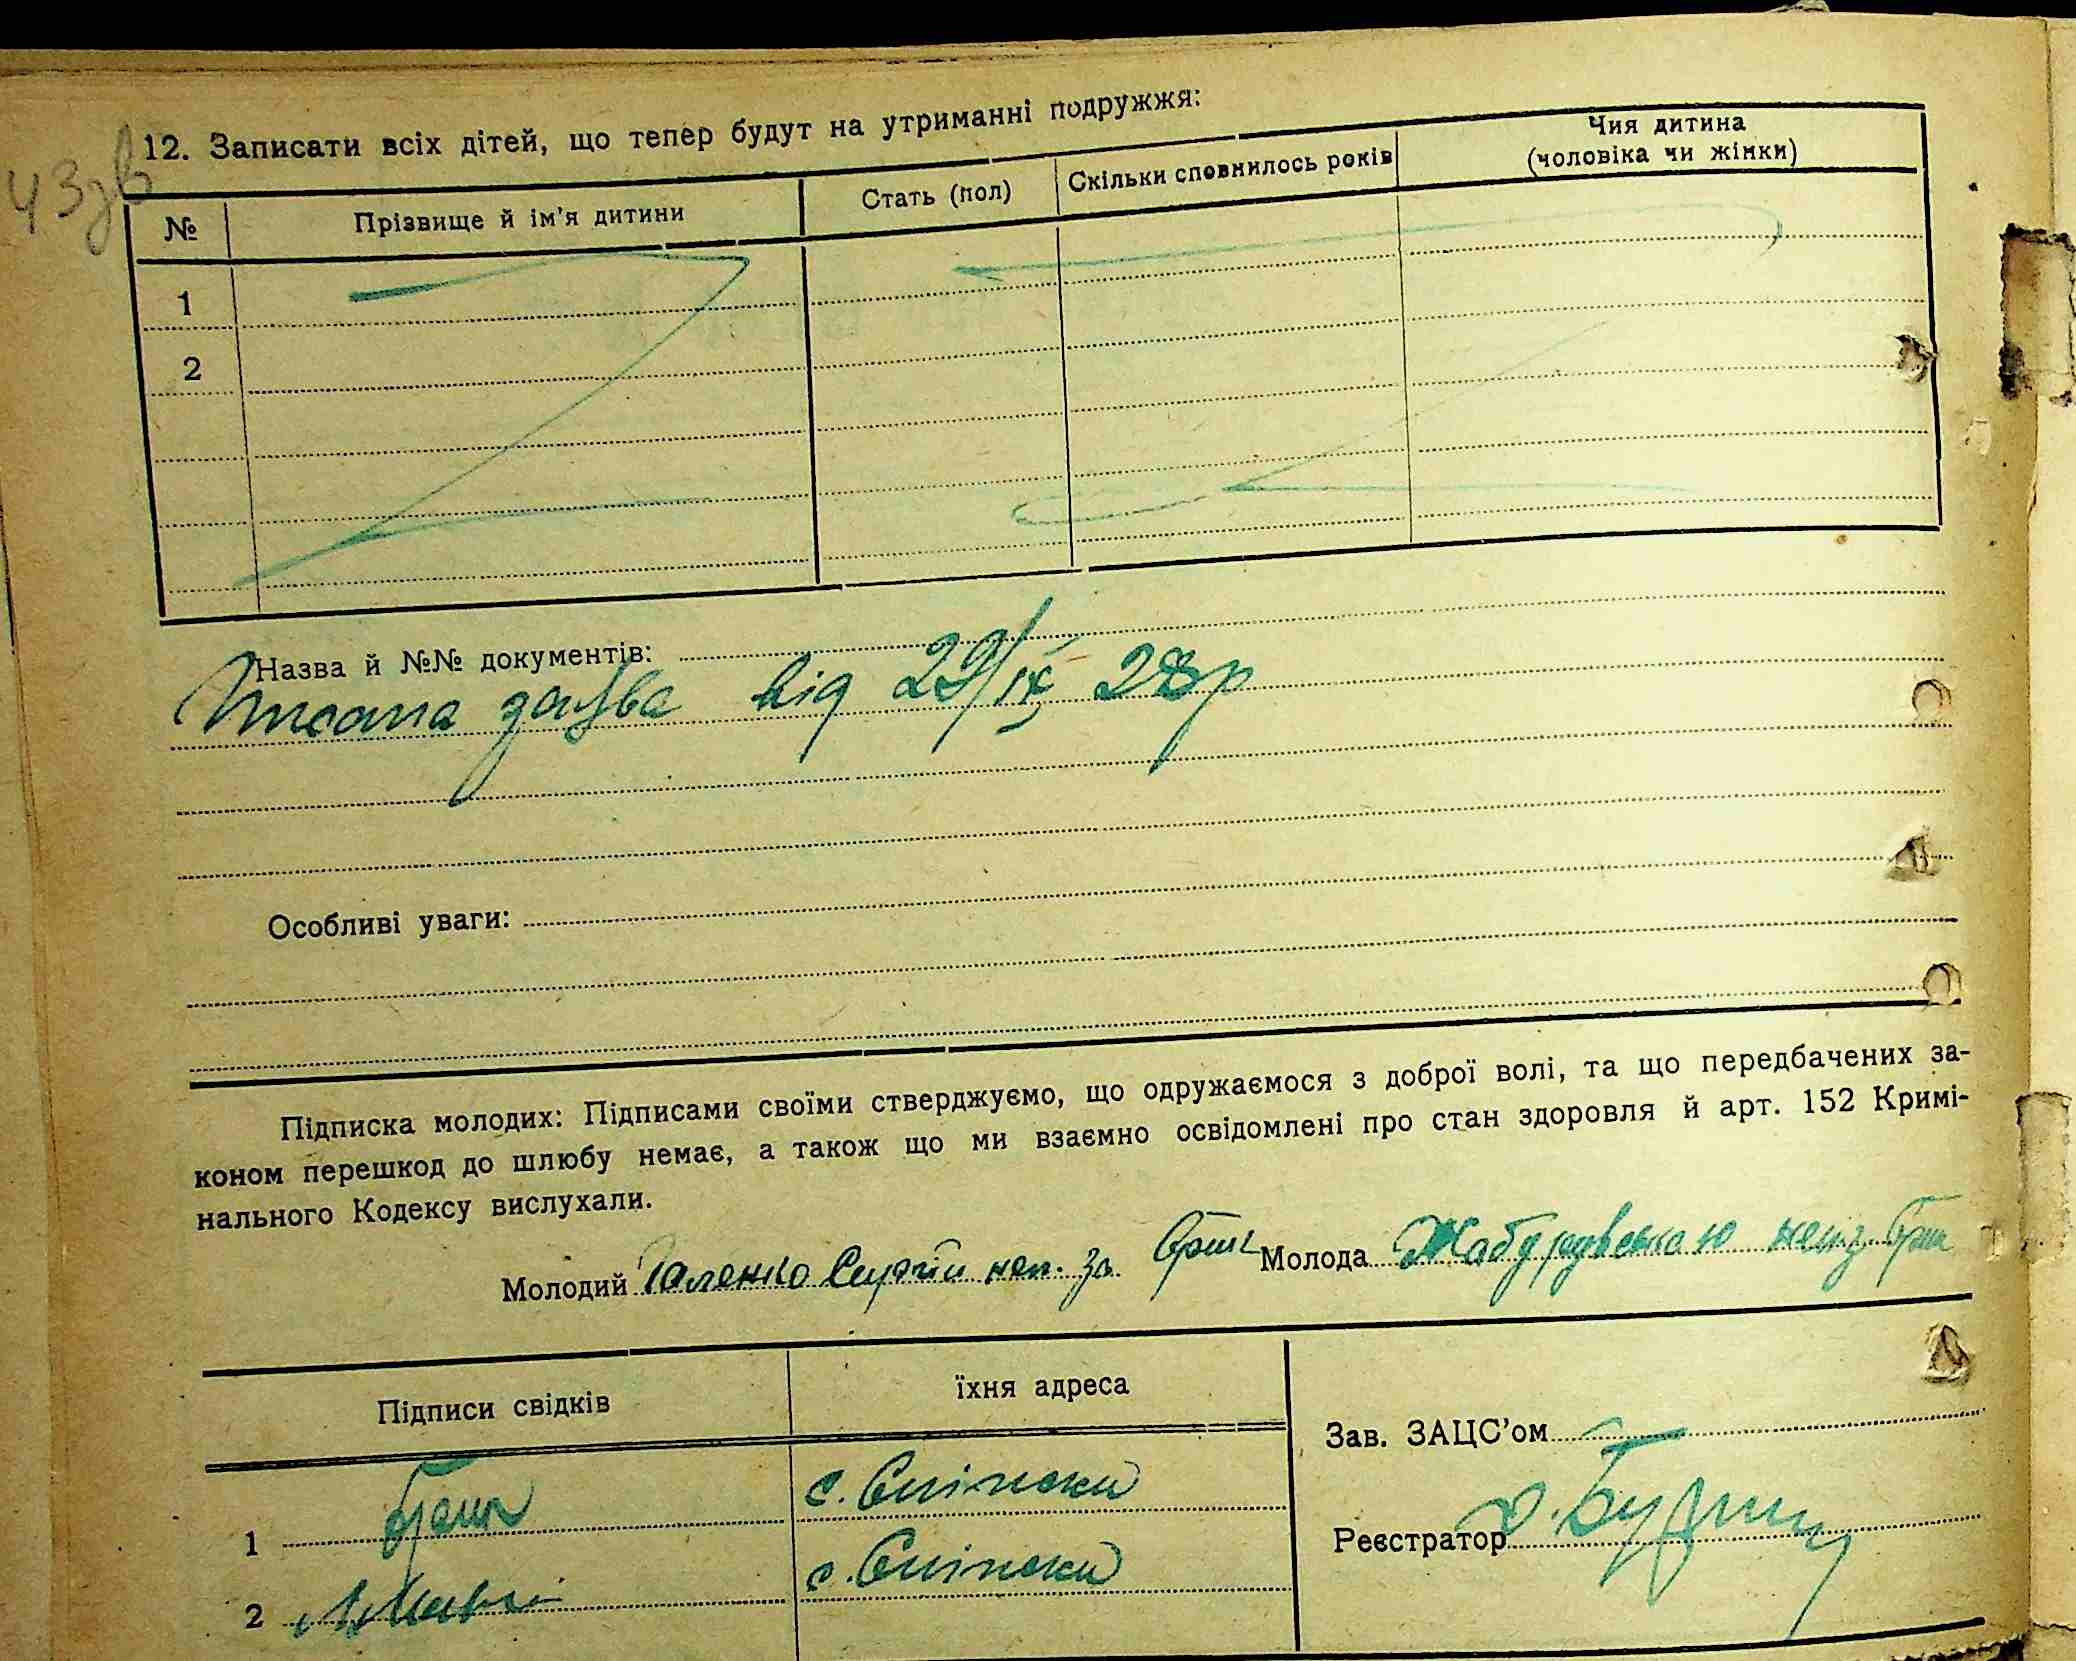 12. Записати всіх дітей, що тепер будут на утриманні подружжя:
№ Прізвище й ім'я дитини Стать (пол) Скільки сповнилось років Чия дитина
(чоловіка чи жінки)
1
2
Назва й №№ документів:
Писана заява від 29/ІХ 28р
Особливі уваги:
Підписка молодих: Підписами своїми стверджуємо, що одружаємося з доброї волі, та що передбачених за-
коном перешкод до шлюбу немає, а також що ми взаємно освідомлені про стан здоровля й арт. 152 Кримі-
нального Кодексу вислухали.
Молодий Галенко Сергій неп. за Молода
Підписи свідків їхня адреса
Зав. ЗАЦС'ом
1 с.
Реєстратор
2 с.